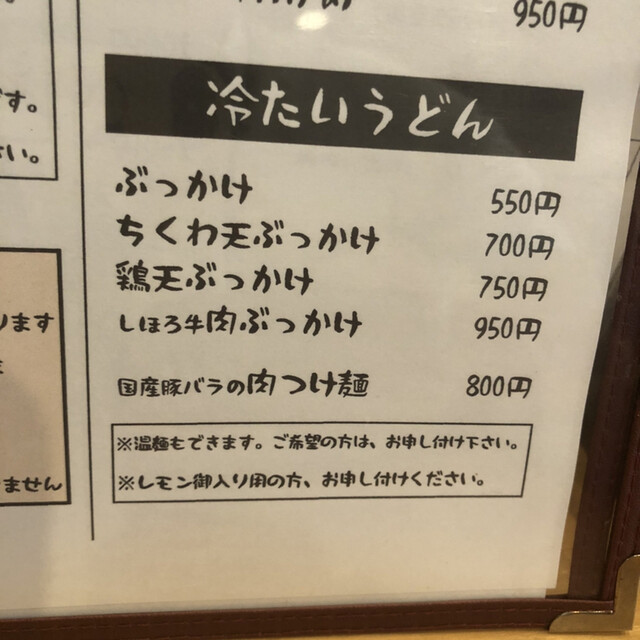 950円
す。
さい。
ります
ません
冷たいうどん
ぶっかけ 550円
ちくわ天ぶっかけ 700円
鶏天ぶっかけ 750円
しほろ牛肉ぶっかけ 950円
国産豚バラの肉つけ麺 800円
※温麺もできます。ご希望の方は、お申し付け下さい。
※レモン御入り用の方、お申し付けください。